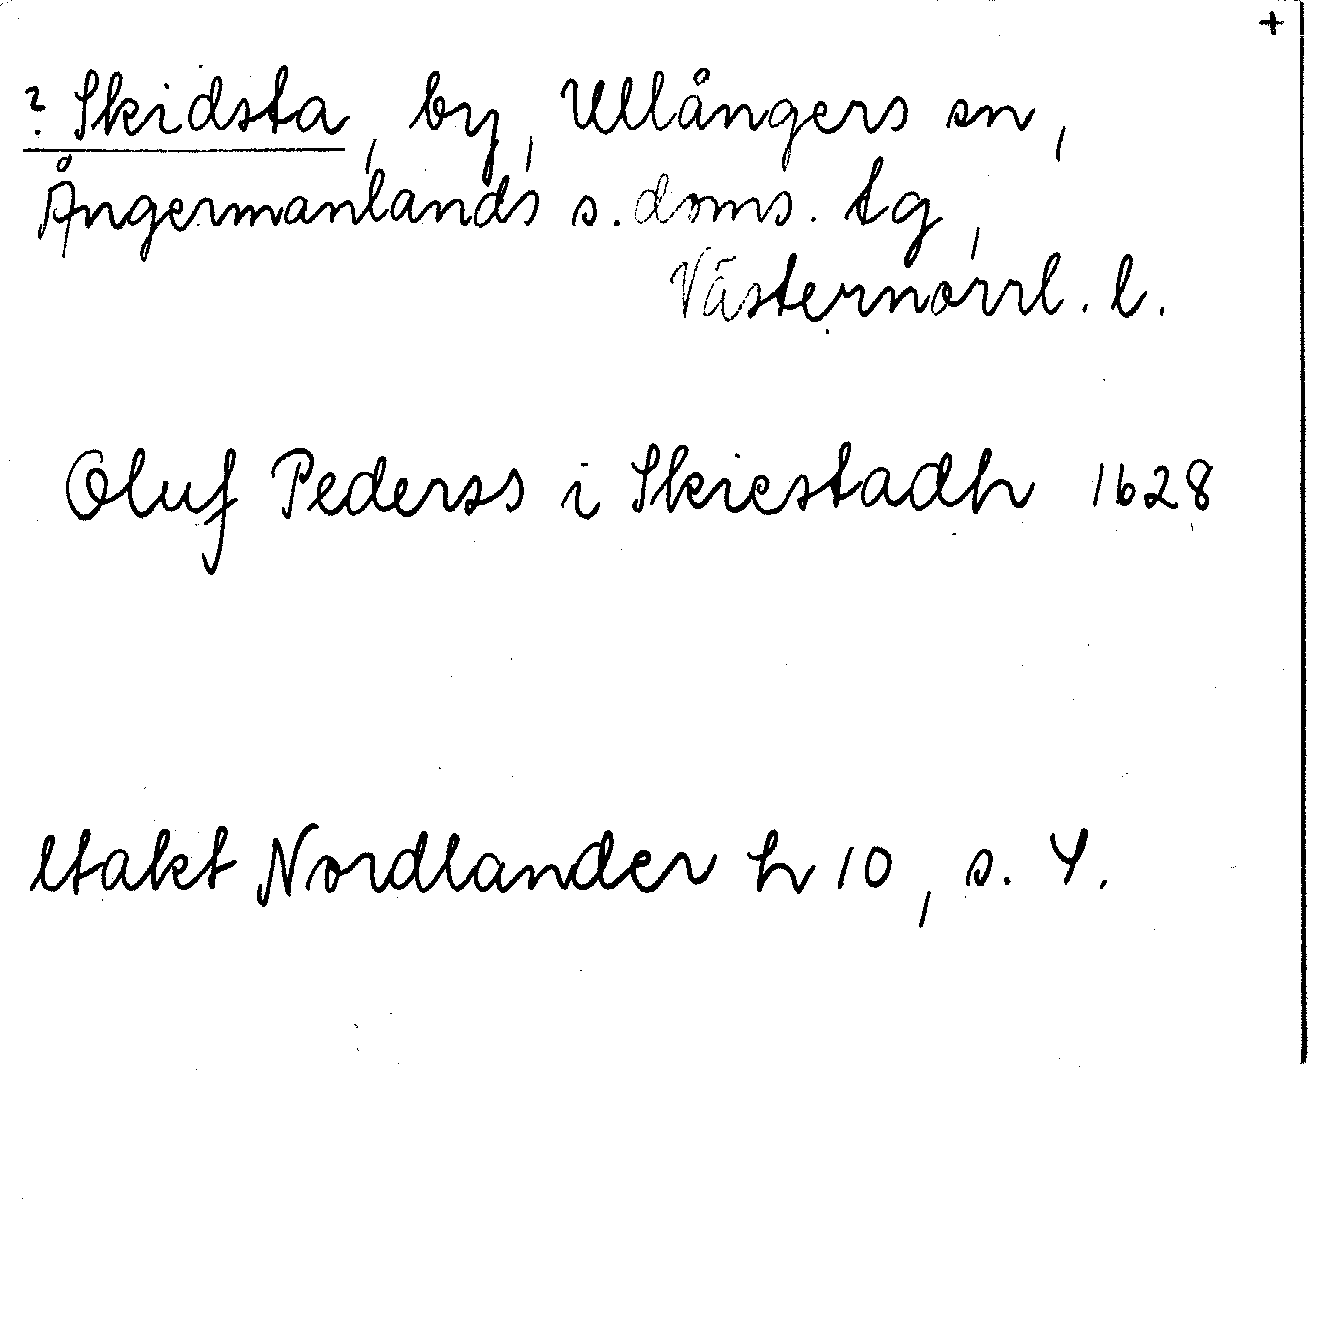 +
? Skidsta, by, Ullångers sn,
Ångermanlands s. doms. tg,
Västernorrl. l.
Oluf Pederss i Skiestadh 1628
Nordlander h 10, s. 4.